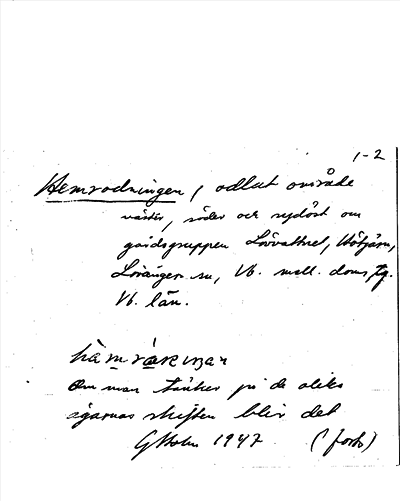 1-2
Hemrodningen, odlat område
väster, söder och sydöst om
gårdsgruppen Lövvattnet,
Lövånger sn, Vb. mell. doms. tg.
Vb. län.
Om man tänker på de olika
ägarnas skiften blir det
GHolm 1947 (forts)